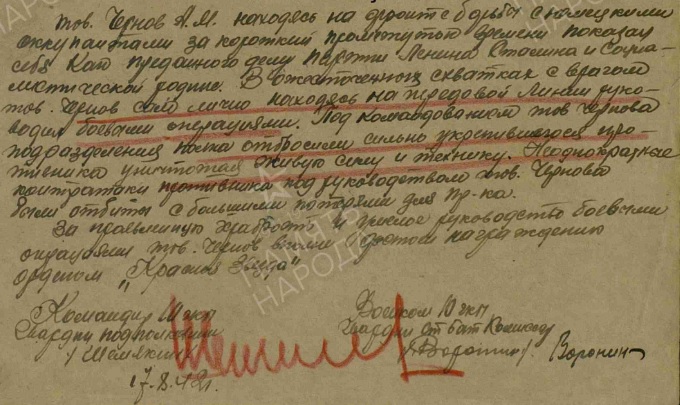 тов. Чернов А.М. находясь на фронте борьбы с немецкими
оккупантами за короткий промежуток времени показал
себя как преданного делу партии Ленина Сталина и социа-
листической родине. В ожесточенных схватках с врагом
тов. Чернов сам лично находясь на передовой линии руко-
водил боевыми операциями. Под командованием тов Чернова
подразделения полка отбросили сильно укрепившегося про-
тивника уничтожая живую силу и технику. Неоднократные
контратаки противника под руководством тов. Чернова
были отбиты с большими потерями для пр-ка.
За проявленную храбрость и умелое руководство боевыми
операциями тов. Чернов вполне достоин награждению
орденом „Красная Звезда"
Командир 10 гкп
Гвардии подполковник
/Шемякин
17.8.42г.
Военком 10 гкп
Гвардии ст бат Комиссар
/Воронин/. Воронин